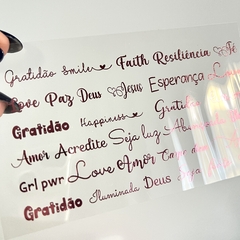 Gratidão Smile Faith Resiliência Fé
Love Paz Deus Jesus Esperança
Gratidão Happiness
Amor Acredite Seja luz
Grl pwr Love Amor
Gratidão Iluminada Deus